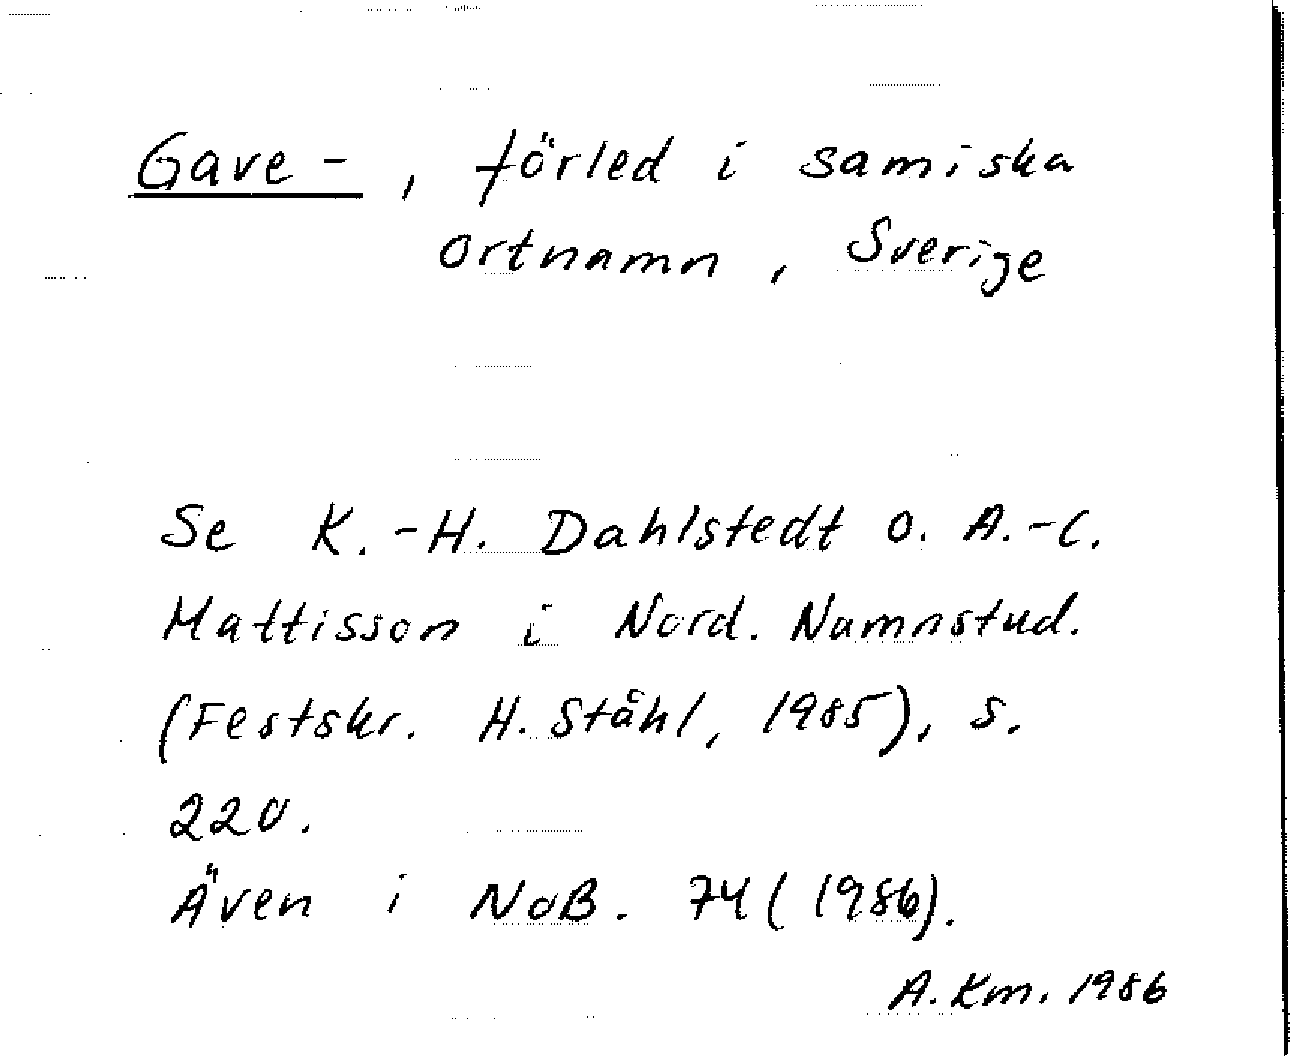 Gave-, förled i samiska
ortnamn, Sverige
Se K.-H. Dahlstedt o. A.-C.
Mattisson i Nord. Namnstud.
(Festskr. H. Ståhl, 1985), s.
220.
Även i NoB. 74 (1986).
A. Km. 1986